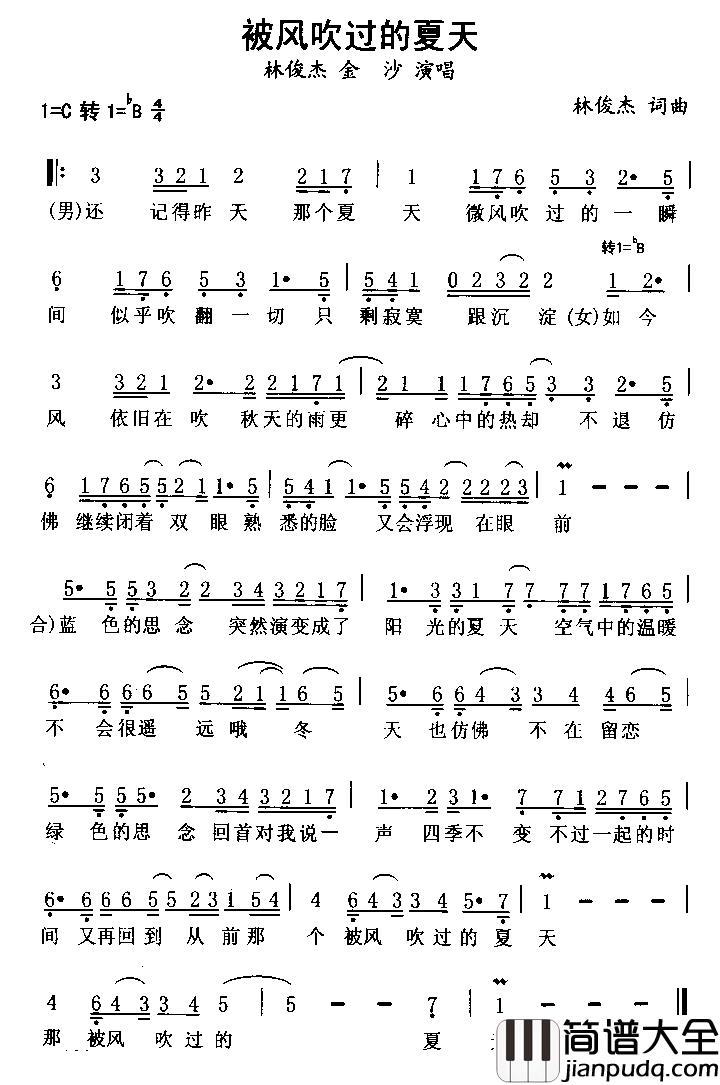 被风吹过的夏天
林俊杰 金 沙 演唱
1=C 转 1=ᵇB 4/4
林俊杰 词曲
3 3 2 1 2 2 1 7 1 1 7 6 5 3 2• 5
(男)还 记得昨 天 那个夏 天 微风吹 过的一瞬
转1=ᵇB
6 1 7 6 5 3 1• 5 5 5 4 1 0 2 3 2 1 2•
间 似乎吹 翻一切只 剩寂寞 跟沉 淀(女)如今
3 3 2 1 2• 2 2 2 1 7 1 2 1 1 1 7 6 5 3 3 2• 5
风 依旧在吹 秋天的雨更 碎 心中的热却 不退仿
6 1 7 6 5 5 2 1 1• 5 5 4 1 1• 5 5 5 4 2 2 2 2 3 1 – – –
佛 继续闭着 双 眼熟 悉的脸 又会浮现 在眼 前
5• 5 5 3 2 2 2 3 4 3 2 1 7 1• 3 3 1 7 7 7 6 7 1 1 7 6 5
合)蓝 色的思 念 突然演变成了 阳 光的夏 天 空气中的温暖
6• 6 6 6 5 5 2 1 1 6 5 5• 6 6 4 3 3 4 4 6 5
不 会很遥 远哦 冬 天 也仿佛 不在留恋
5• 5 5 5• 2• 2 2 3 4 3 2 1 7 1• 2 3 2 5• 5 5 6 7 6 5
绿 色的思 念回首对我说一 声 四季不 变 不过一起的时
6• 6 6 6 5 5 2 3 1 5 4 4 6 4 3 3 4 3 5• 7 1 – – –
间 又再回到 从 前那 个 被风 吹过的夏 天
4 6 4 3 3 4 5 5 – – 7 1 – – –
那 被风 吹过的 夏
简谱大全
jianpudq.com